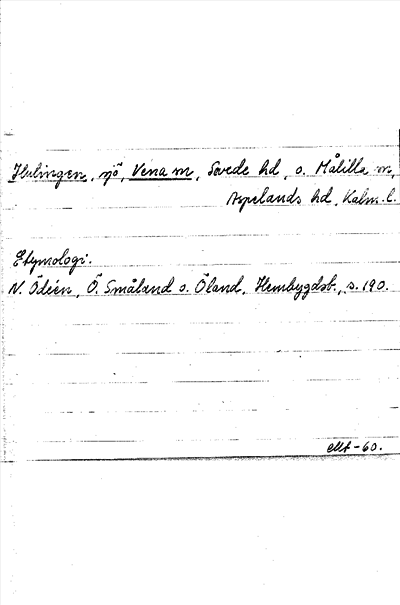 Hulingen, sjö, Vena sn, Sevede hd, o. Målilla sn,
Aspelands hd, Kalm. l.
Etymologi.
N. Ödéen, Ö. Småland o. Öland, Hembygdsb., s. 190.
-60.